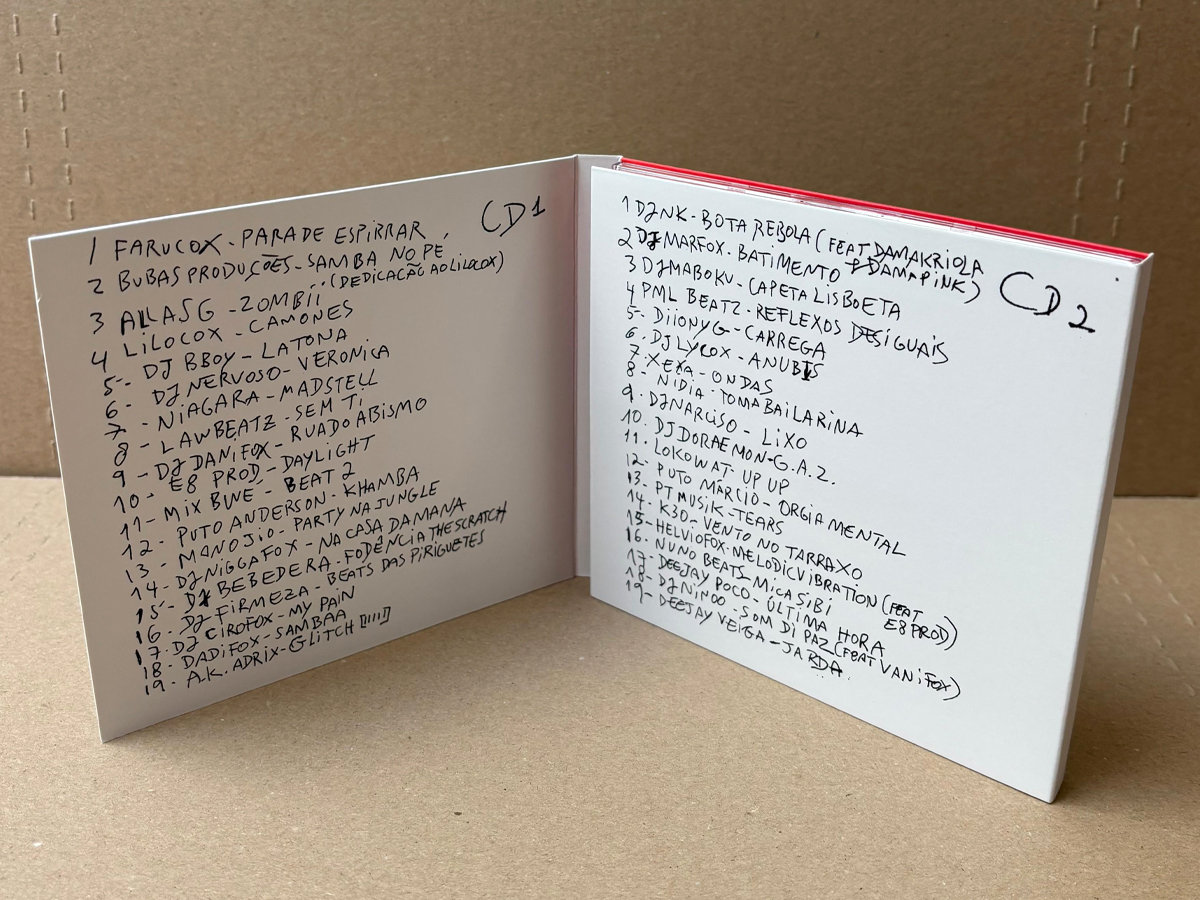 CD1
1 FARUCOX - PARA DE ESPIRRAR
2 BUBAS PRODUÇÕES - SAMBA NO PE
(DEDICAÇÃO AO LILOCOX)
3 ALLASG - ZOMBIÍ
4 LILOCOX - CAMONES
5- DJ BBOY - LATONA
6- DJ NERVOSO - VERONICA
7- NIAGARA - MADSTELL
8- LAWBEATZ - SEM TI
9- DJ DANIFOX - RUA DO ABISMO
10- E8 PROD - DAYLIGHT
11- MIX BWÉ - BEAT 2
12- PUTO ANDERSON - KHAMBA
13- MANOJIO - PARTY NA JUNGLE
14- DJ NIGGA FOX - NA CASA DA MANA
15- DJ BEBEDERA - FODÊNCIA THE SCRATCH
16- DJ FIRMEZA - BEATS DAS PIRIGUETES
17- DJ CIROFOX - MY PAIN
18- DADIFOX - SAMBAA
19- A.K. ADRIX - GLITCH
CD2
1 DJ NK - BOTA REBOLA (FEAT DAMA KRIOLA
& DAMA PINK)
2 DJ MARFOX - BATIMENTO
3 DJ MABOKU - CAPETA LISBOETA
4 PML BEATZ - REFLEXOS DESIGUAIS
5- DIIONY G - CARREGA
6- DJ LYCOX - ANUBIS
7- XEXA - ONDAS
8- NIDIA - TOMA BAILARINA
9- DJ NARCISO - LIXO
10. DJ DORAEMON - G.A.Z.
11. LOKOWAT - UP UP
12- PUTO MÁRCIO - ORGIA MENTAL
13- PT MUSIK - TEARS
14- K30 - VENTO NO TARRAXO
15- HELVIOFOX - MELODIC VIBRATION (FEAT
E8 PROD)
16- NUNO BEATS - MICA SIBI
17- DEEJAY POCO - ÚLTIMA HORA
18- DJ NINOO - SOM DI PAZ (FEAT VANIFOX)
19- DEEJAY VEIGA - JARDA